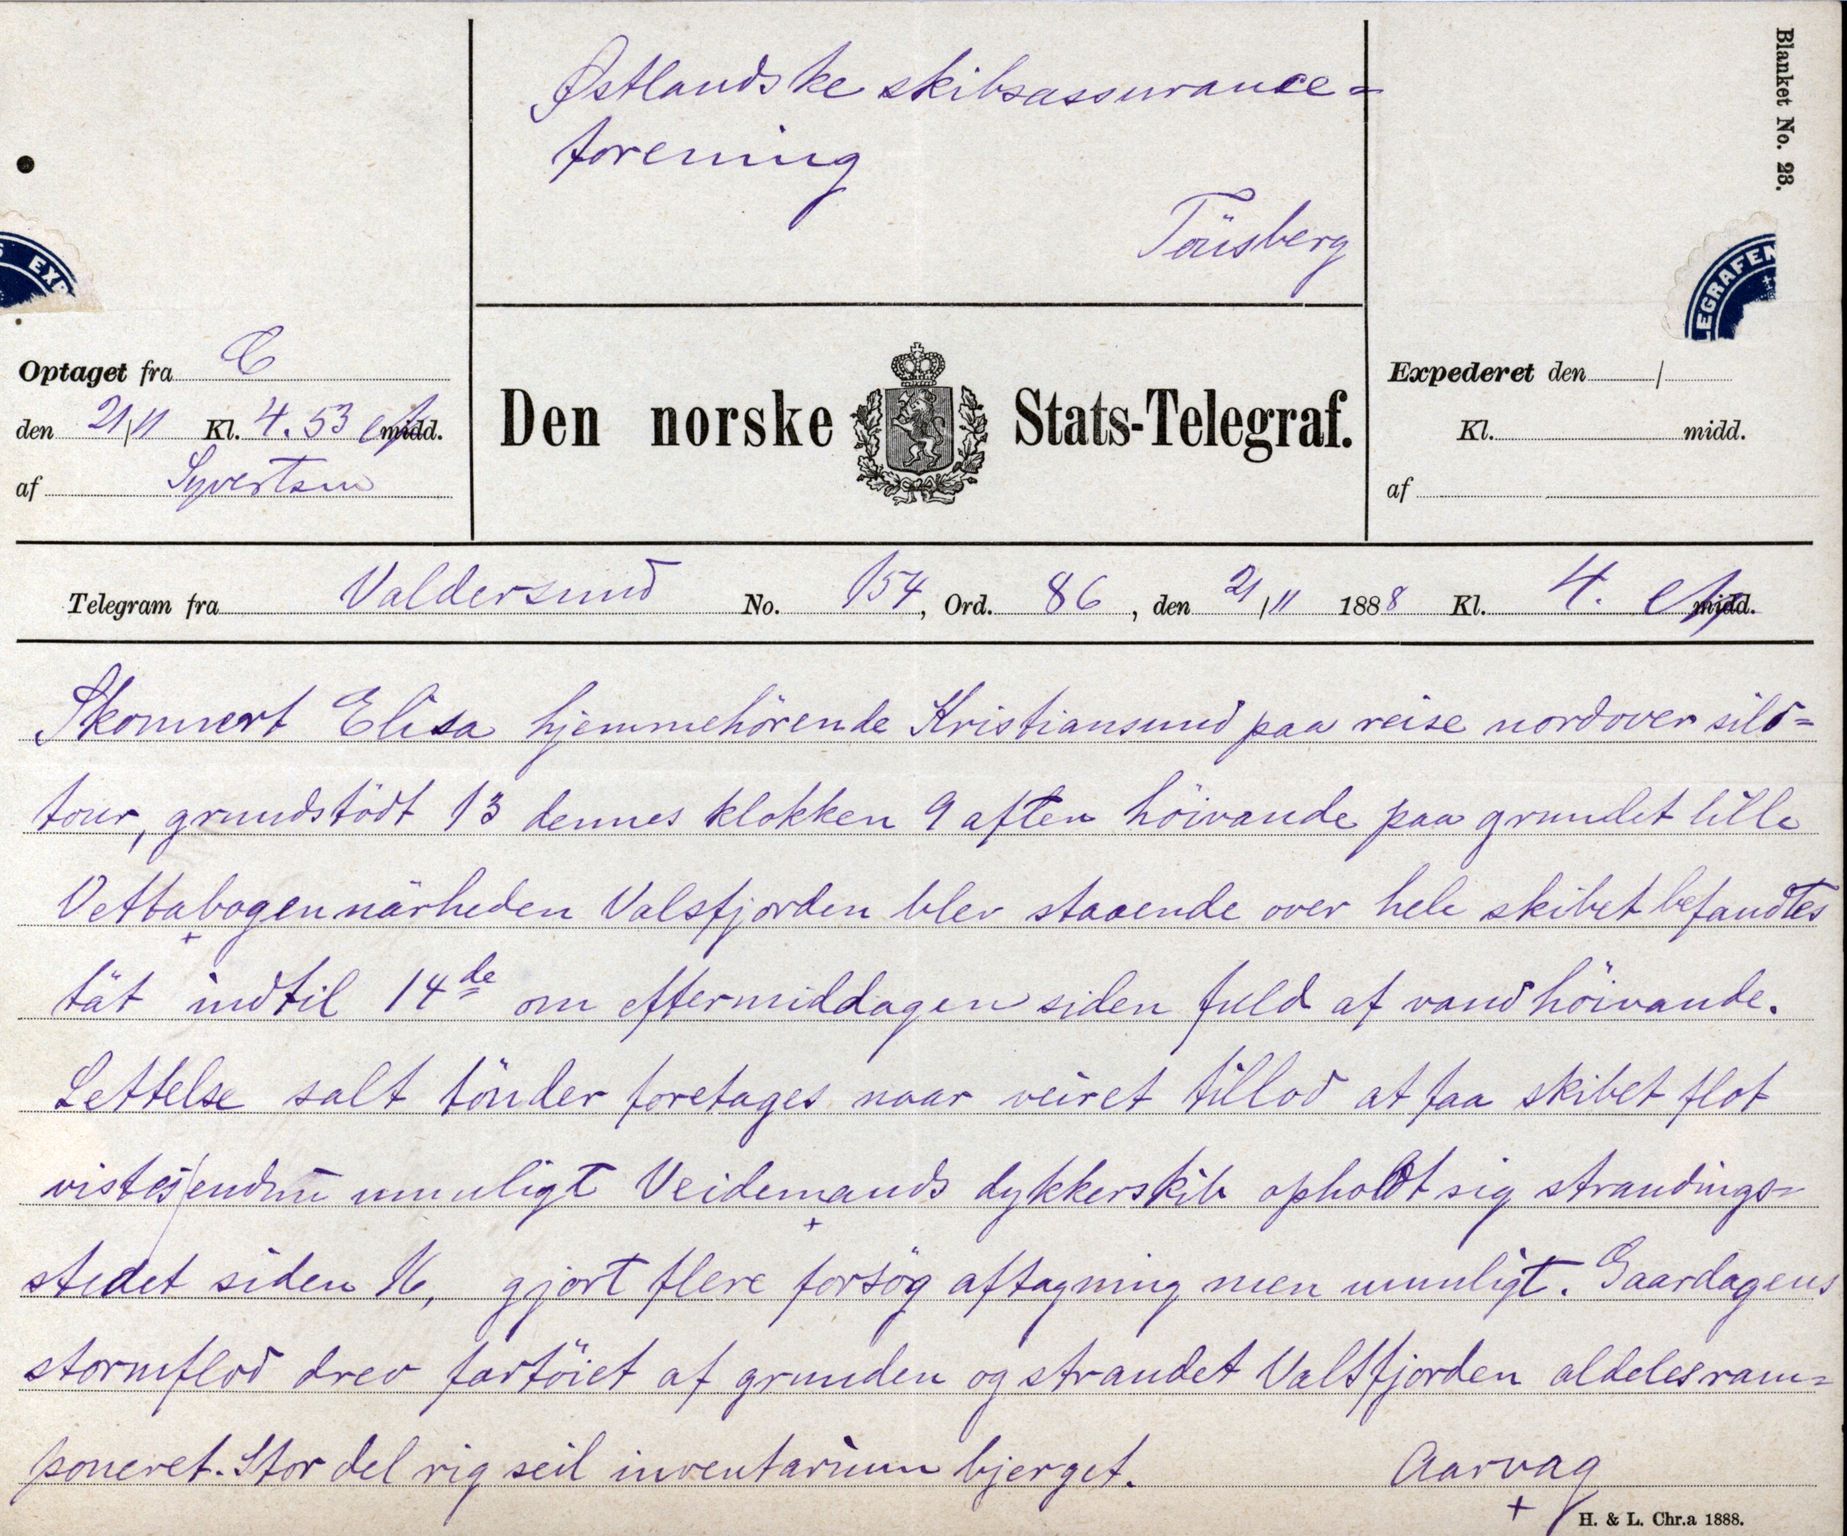 Blanket No. 23.
Østlandske skibsassurance=
forening
Tönsberg
S EXP
EGRAFEN
Optaget fra C
den 21/11 Kl. 4.53 eft midd.
af Syvertsen
Den norske Stats-Telegraf.
Expederet den /
Kl. midd.
af
Telegram fra Valdersund No. 154, Ord. 86, den 21/11 1888 Kl. 4. eft midd.
Skonnert Elisa hjemmehörende Kristiansund paa reise nordover sild=
tour, grundstödt 13 dennes klokken 9 aften höivande paa grundet lille
Vettabogen närheden Valsfjorden blev staaende over hele skibet befandtes
tät indtil 14de om eftermiddagen siden fuld af vand höivande.
Lettelse salt tönder foretages naar veiret tillod at faa skibet flot
vistes endnu umuligt Veidemands dykkerskib opholdt sig strandings=
stedet siden 16, gjort flere forsög aftagning men umuligt. Gaardagens
stormflod drev fartöiet af grunden og strandet Valsfjorden aldeles ram=
poneret. Stor del rig seil inventarium bjerget. Aarvag
H. & L. Chr.a 1888.